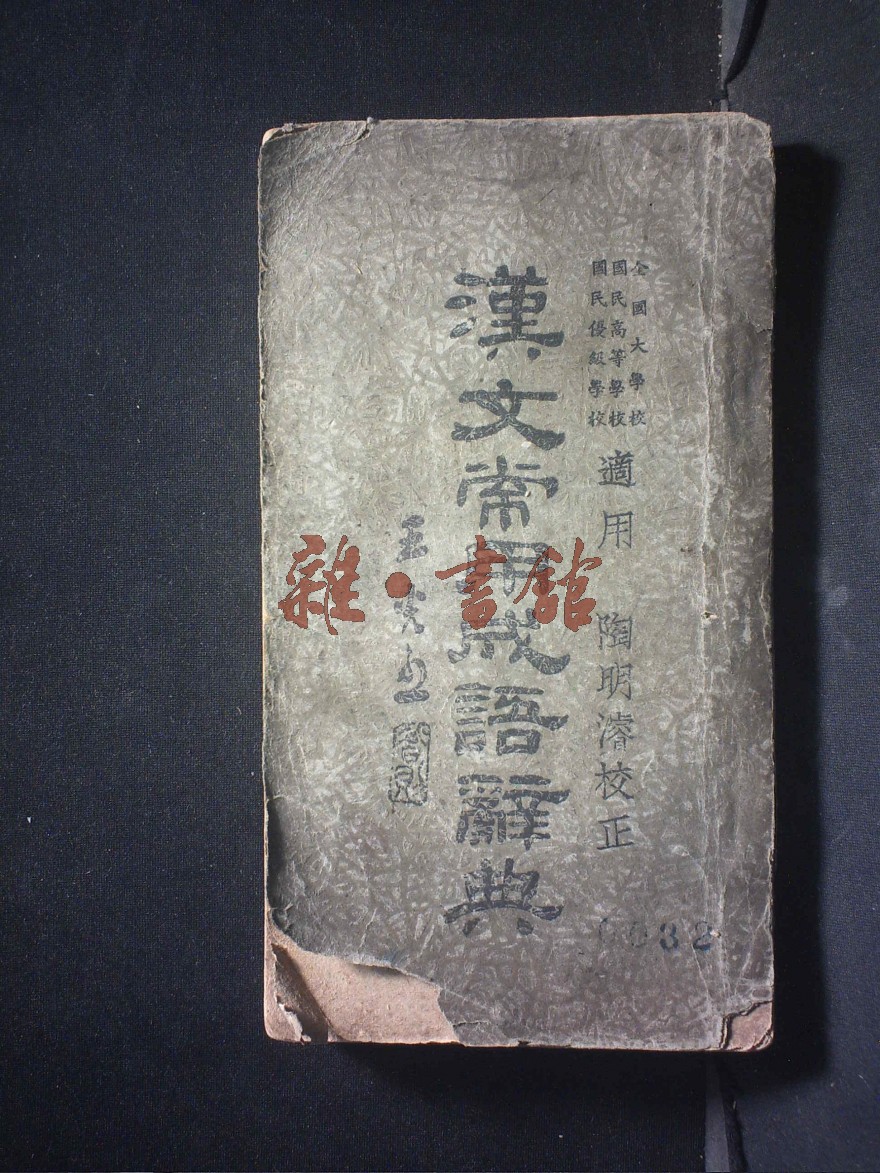 全國大學校
國民高等學校
國民優級學校
適用 陶明濬校正
漢文常用成語辭典
雜·書館
032